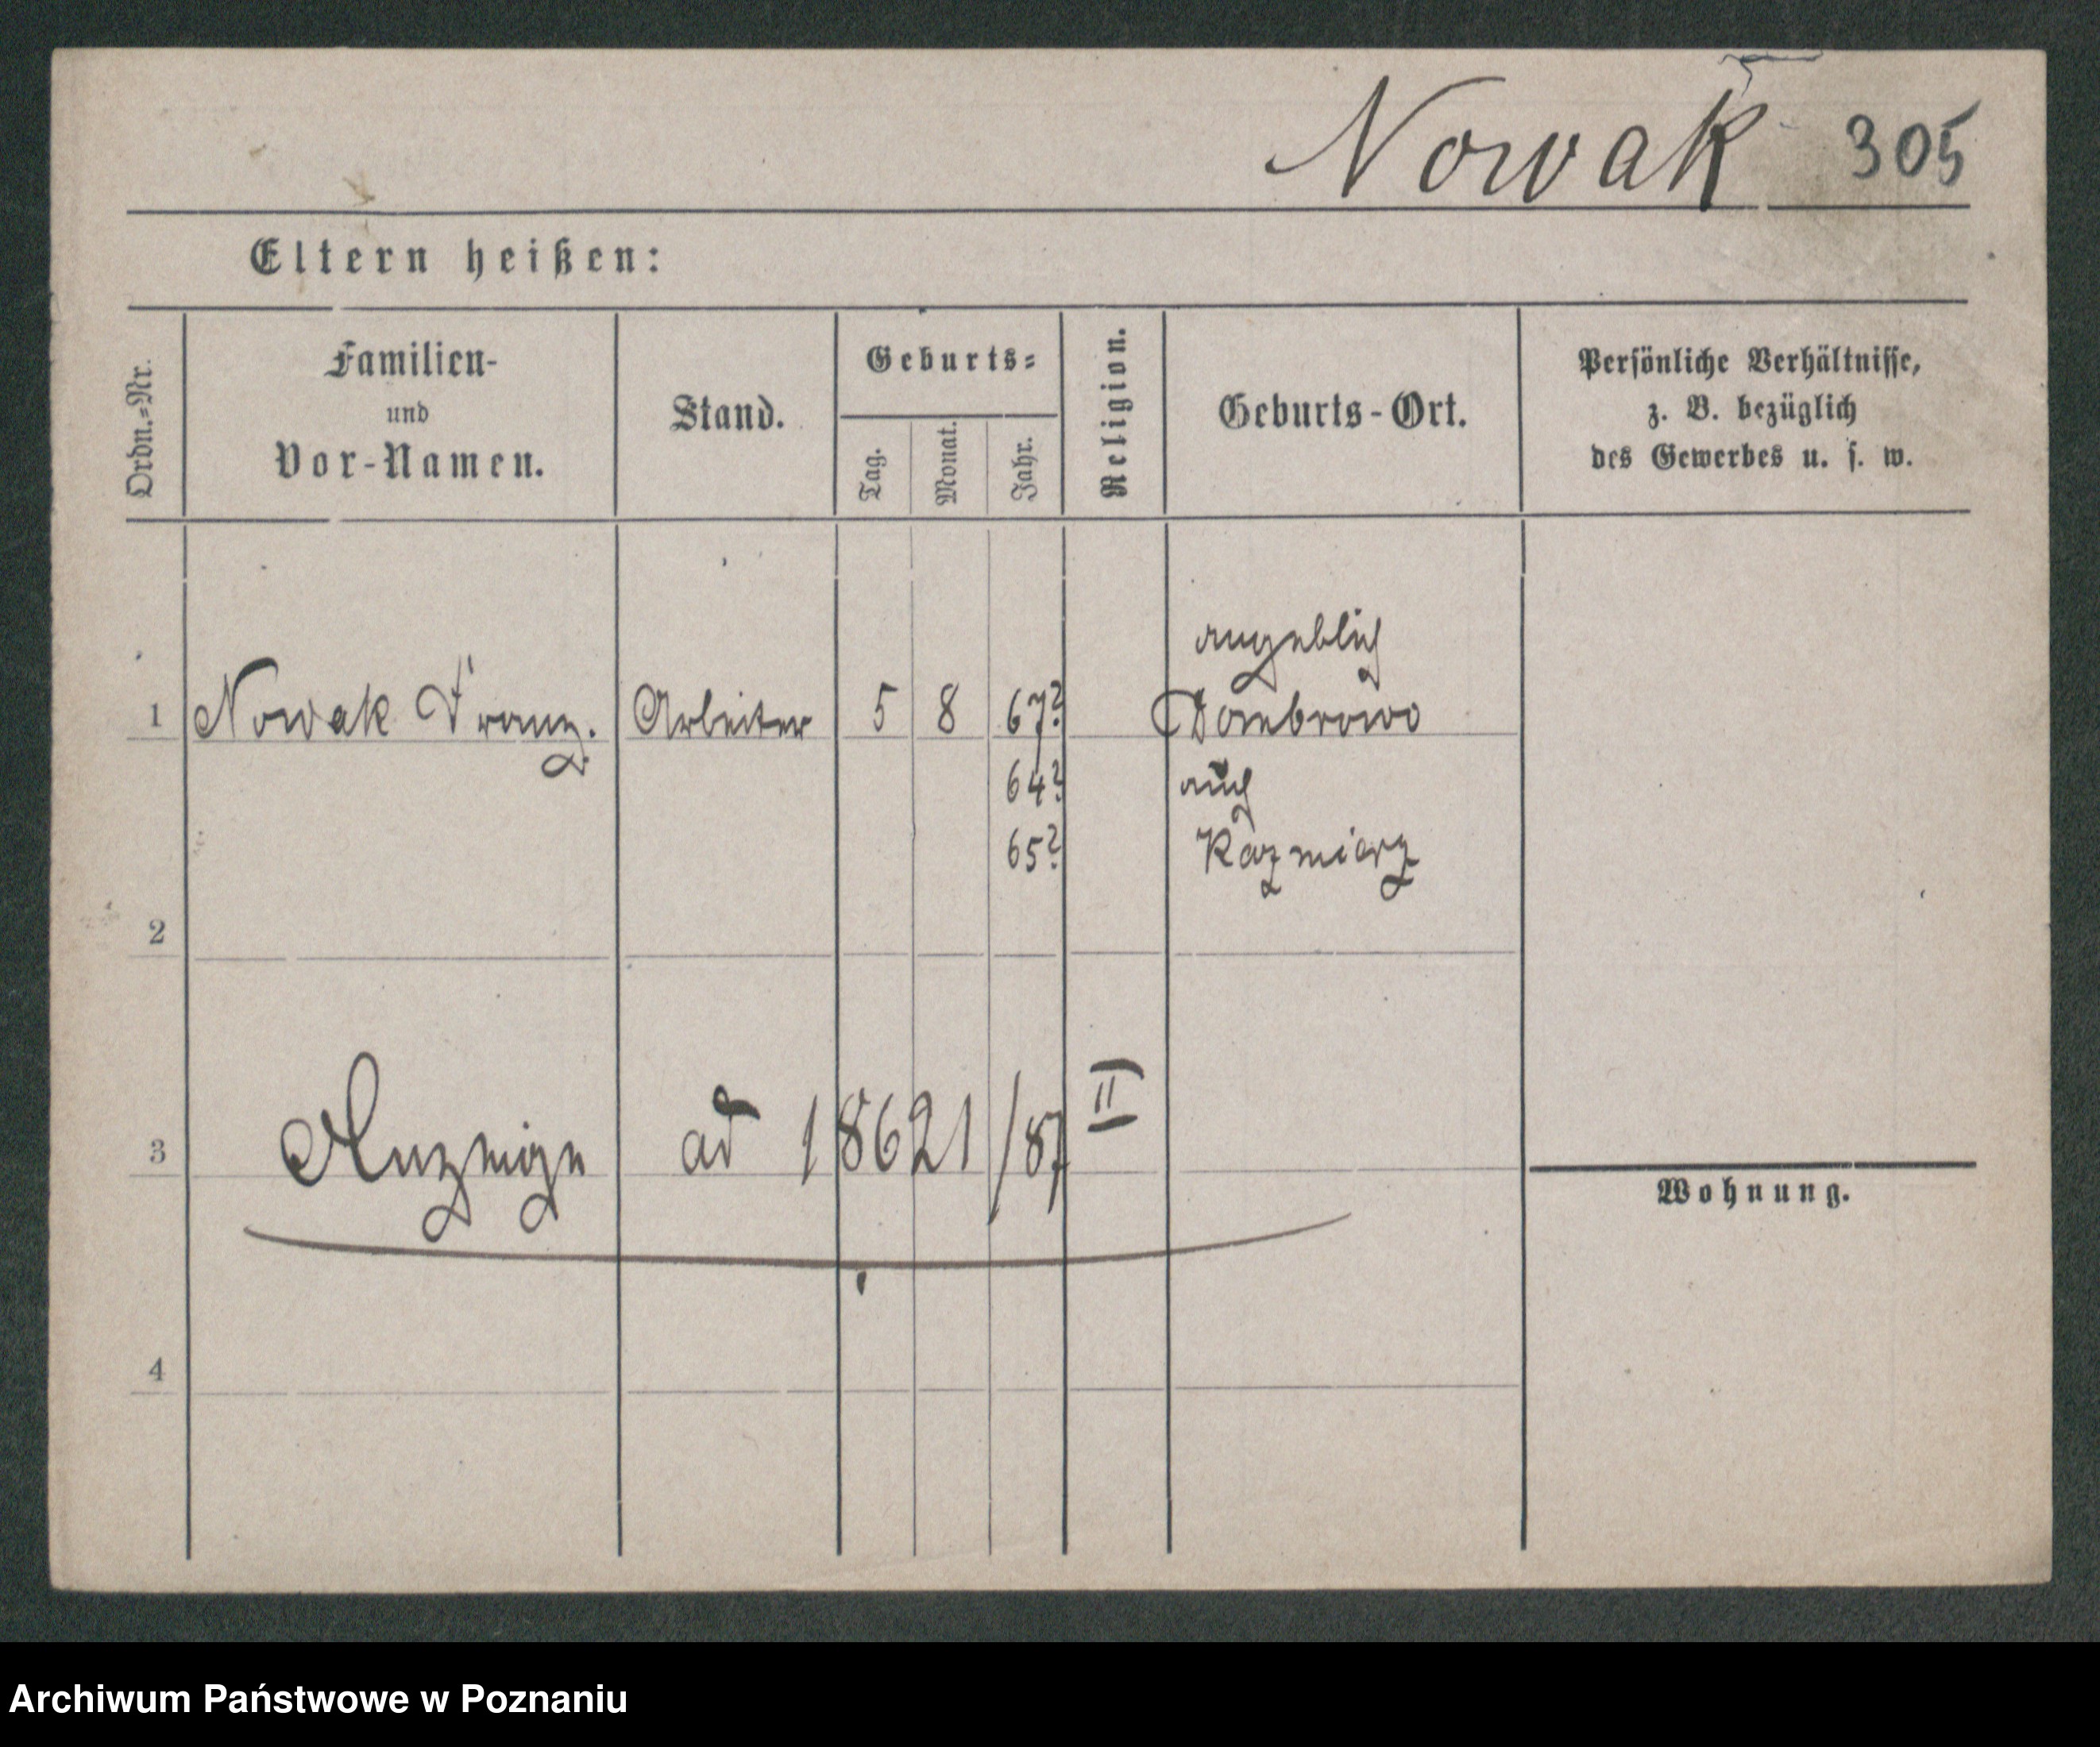 Nowak 305
Eltern heißen:
Ordn.=Nr.
Familien-
und
Vor-Namen.
Stand.
Geburts=
Tag.
Monat.
Jahr.
Religion.
Geburts-Ort.
Persönliche Verhältnisse,
z. B. bezüglich
des Gewerbes u. s. w.
angeblich
1 Nowak Franz. Arbeiter 5 8 67? Dombrowo
64? auch
65? Kazmierz
2
3 Anzeige ad 18621/87 II
Wohnung.
4
Archiwum Państwowe w Poznaniu